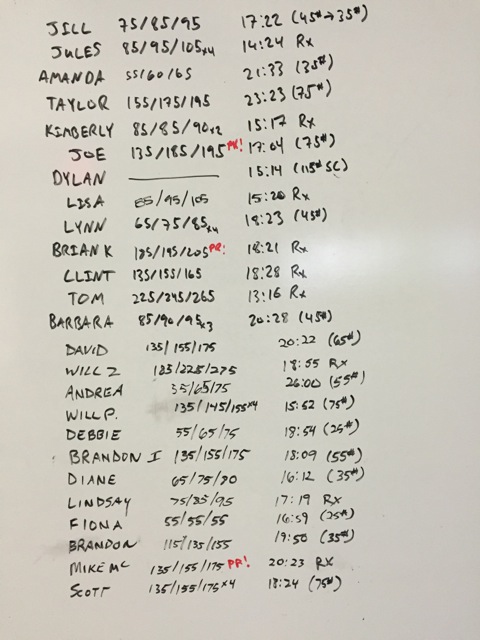 JILL 75/85/95 17:22 (45#→35#)
JULES 85/95/105x4 14:24 Rx
AMANDA 55/60/65 21:33 (35#)
TAYLOR 155/175/195 23:23 (75#)
KIMBERLY 85/85/90x2 15:17 Rx
JOE 135/185/195 PR! 17:04 (75#)
DYLAN 15:14 (115# SC)
LISA 85/95/105 15:20 Rx
LYNN 65/75/85x4 18:23 (45#)
BRIAN K 185/195/205 PR! 18:21 Rx
CLINT 135/155/165 18:28 Rx
TOM 225/245/265 13:16 Rx
BARBARA 85/90/95x3 20:28 (45#)
DAVID 135/155/175 20:22 (65#)
WILL Z 185/225/275 18:55 Rx
ANDREA 55/65/75 26:00 (55#)
WILL P. 135/145/155x4 15:52 (75#)
DEBBIE 55/65/75 18:54 (25#)
BRANDON I 135/155/175 18:09 (55#)
DIANE 65/75/80 16:12 (35#)
LINDSAY 75/85/95 17:19 Rx
FIONA 55/55/55 16:59 (25#)
BRANDON 115/135/155 19:50 (35#)
MIKE MC 135/155/175 PR! 20:23 RX
SCOTT 135/155/175x4 18:24 (75#)